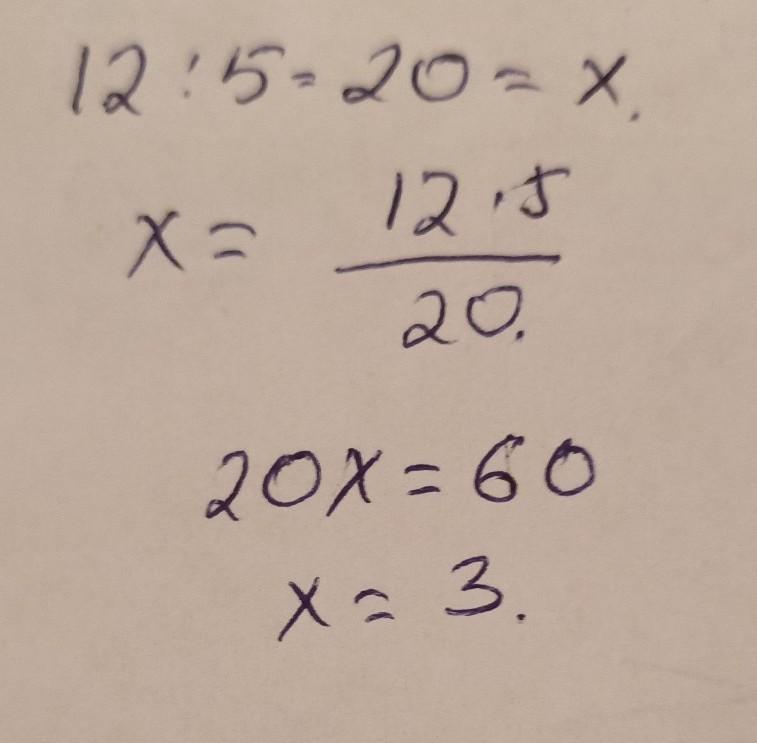 12:5=20=x.
x= 12·5/20.
20x=60
x=3.